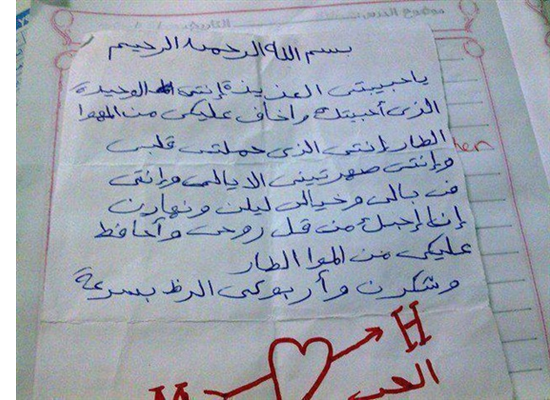 بسم الله الرحمن الرحيم
ياحبيبتي العزيزة إنتى الوحيدة
الذى أحببتك واخاف عليكى من الهوا
الطار إنتى الذى حملتى قلبى
وإنتى سهرتينى الايالى وإنتى
فى بالى وخيالى ليلن ونهارن
من كل روحى وأحافظ
عليكى من الهوا الطار
وشكرن وأرجوكى الرظ بسرعة
H
M
الحب